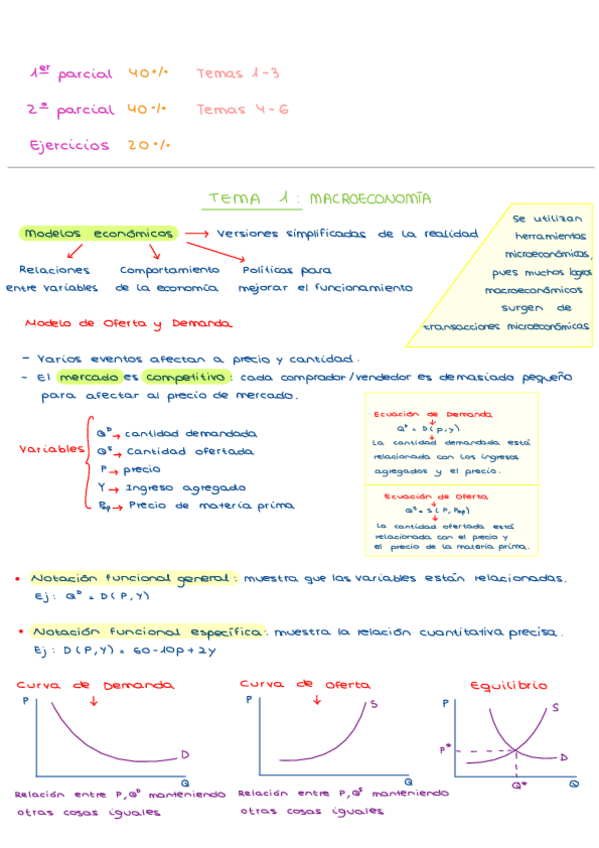 1er parcial 40% Temas 1-3
2º parcial 40% Temas 4-6
Ejercicios 20%
TEMA 1: MACROECONOMÍA
Modelos económicos → Versiones simplificadas de la realidad
Relaciones
entre variables
Comportamiento
de la economía
Políticas para
mejorar el funcionamiento
Se utilizan
herramientas
microeconómicas,
pues muchos logros
macroeconómicos
surgen de
transacciones microeconómicas
Modelo de Oferta y Demanda
- Varios eventos afectan a precio y cantidad.
- El mercado es competitivo: cada comprador/vendedor es demasiado pequeño
para afectar al precio de mercado.
Variables
Qᴰ → cantidad demandada
Qˢ → Cantidad ofertada
P → precio
Y → Ingreso agregado
Pmp → Precio de materia prima
Ecuación de Demanda
Qᴰ = D(P,Y)
La cantidad demandada está
relacionada con los ingresos
agregados y el precio.
Ecuación de Oferta
Qˢ = S(P, Pmp)
La cantidad ofertada está
relacionada con el precio y
el precio de la materia prima.
• Notación funcional general: muestra que las variables están relacionadas.
Ej: Qᴰ = D(P,Y)
• Notación funcional específica: muestra la relación cuantitativa precisa.
Ej: D(P,Y) = 60-10p+2y
Curva de Demanda
P
D
Q
Relación entre P,Qᴰ manteniendo
otras cosas iguales
Curva de Oferta
P
S
Q
Relación entre P,Qˢ manteniendo
otras cosas iguales
Equilibrio
P
S
P*
D
Q*
Q